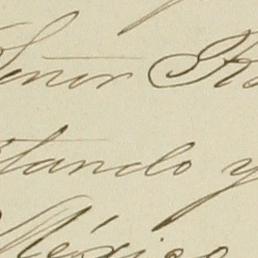 Señor R
tando y
México